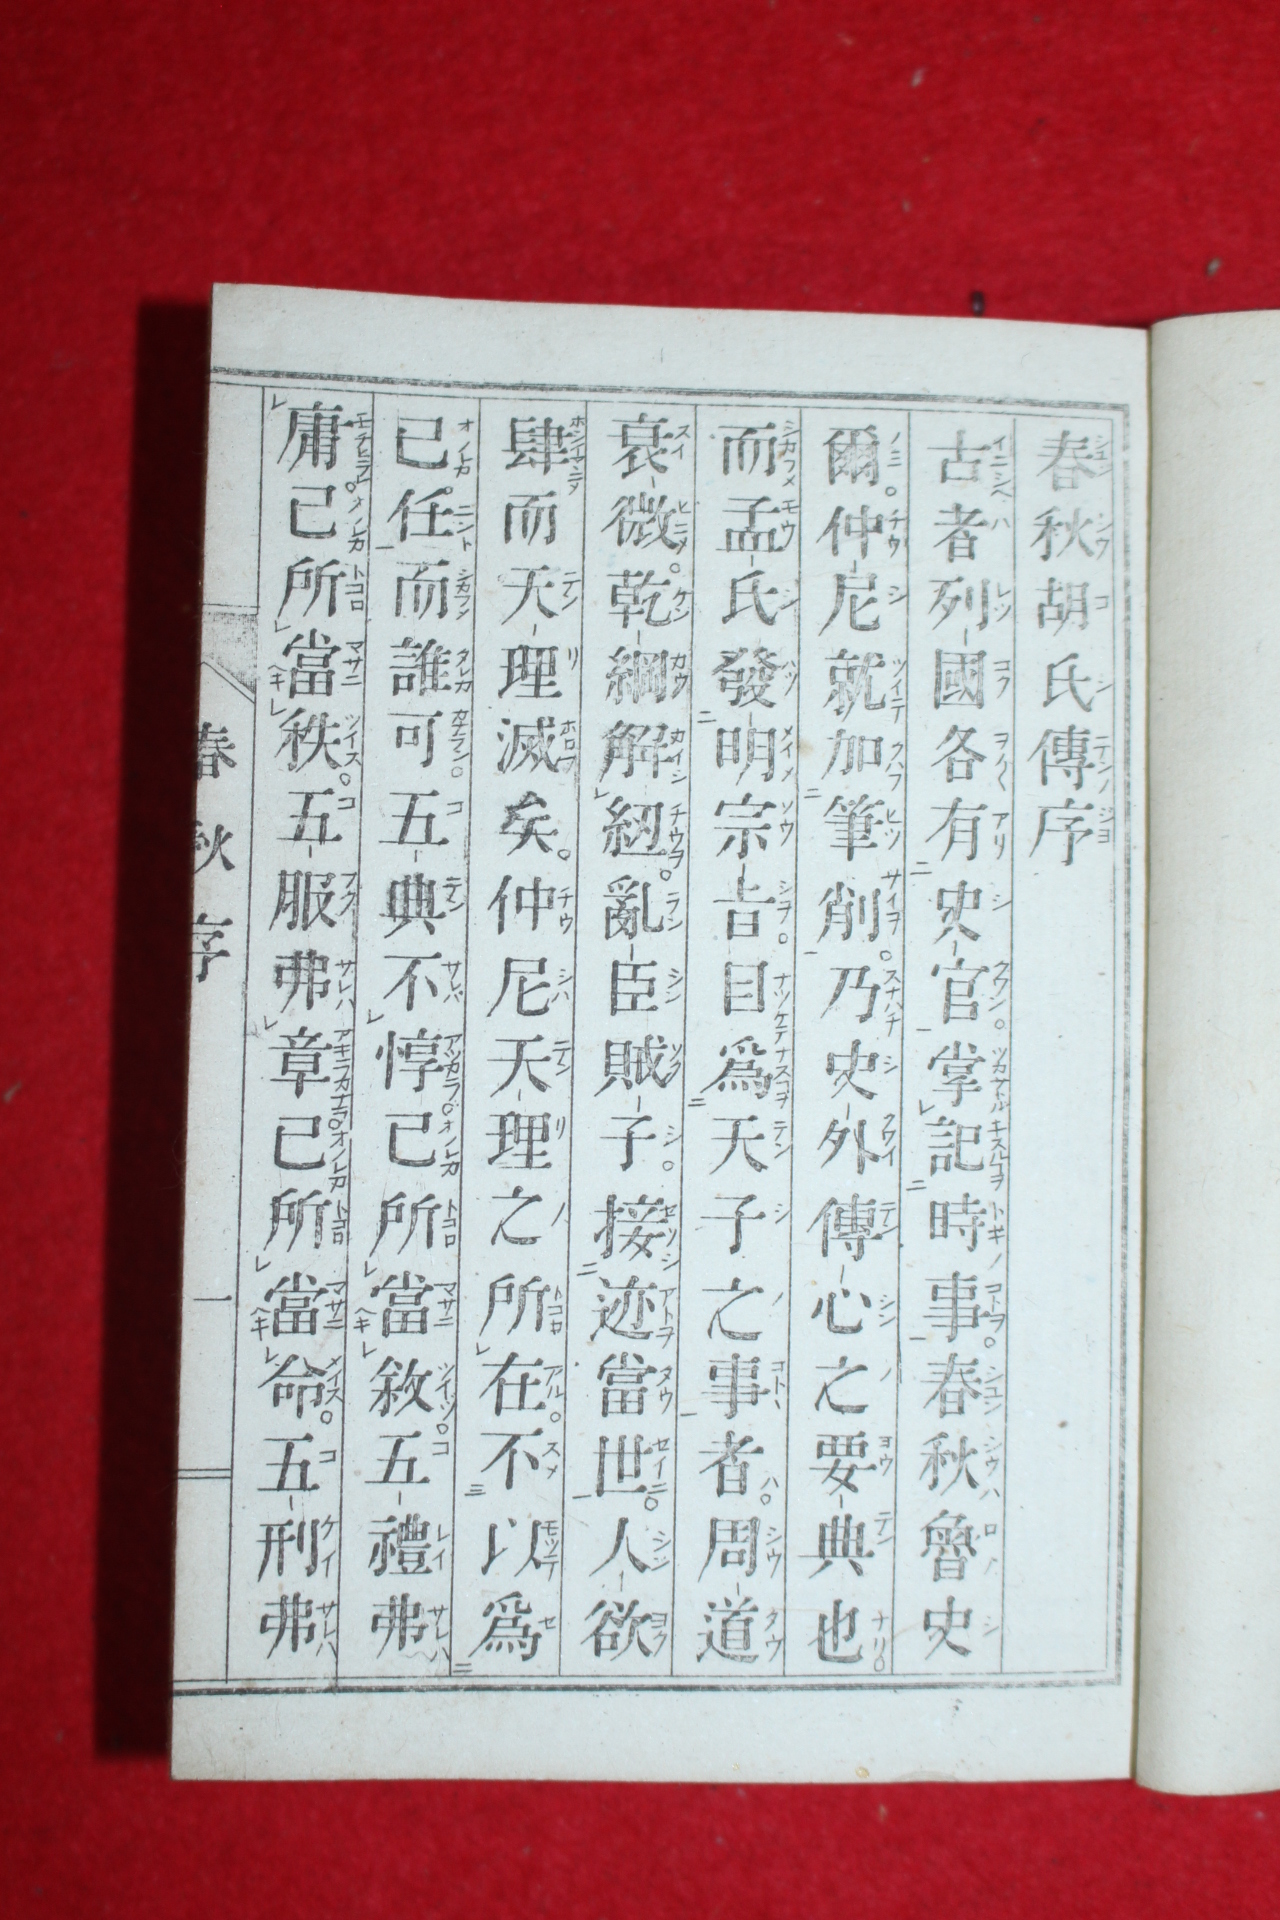 春秋胡氏傳序
古者列國各有史官。掌記時事。春秋魯史
爾。仲尼就加筆削。乃史外傳心之要典也。
而孟氏發明宗㫖。目爲天子之事者。周道
衰微。乾綱解紐。亂臣賊子。接迹當世。人欲
肆而天理滅矣。仲尼天理之所在。不以爲
己任而誰可。五典不惇。己所當敘。五禮弗
庸。己所當秩。五服弗章。己所當命。五刑弗
春秋序
一